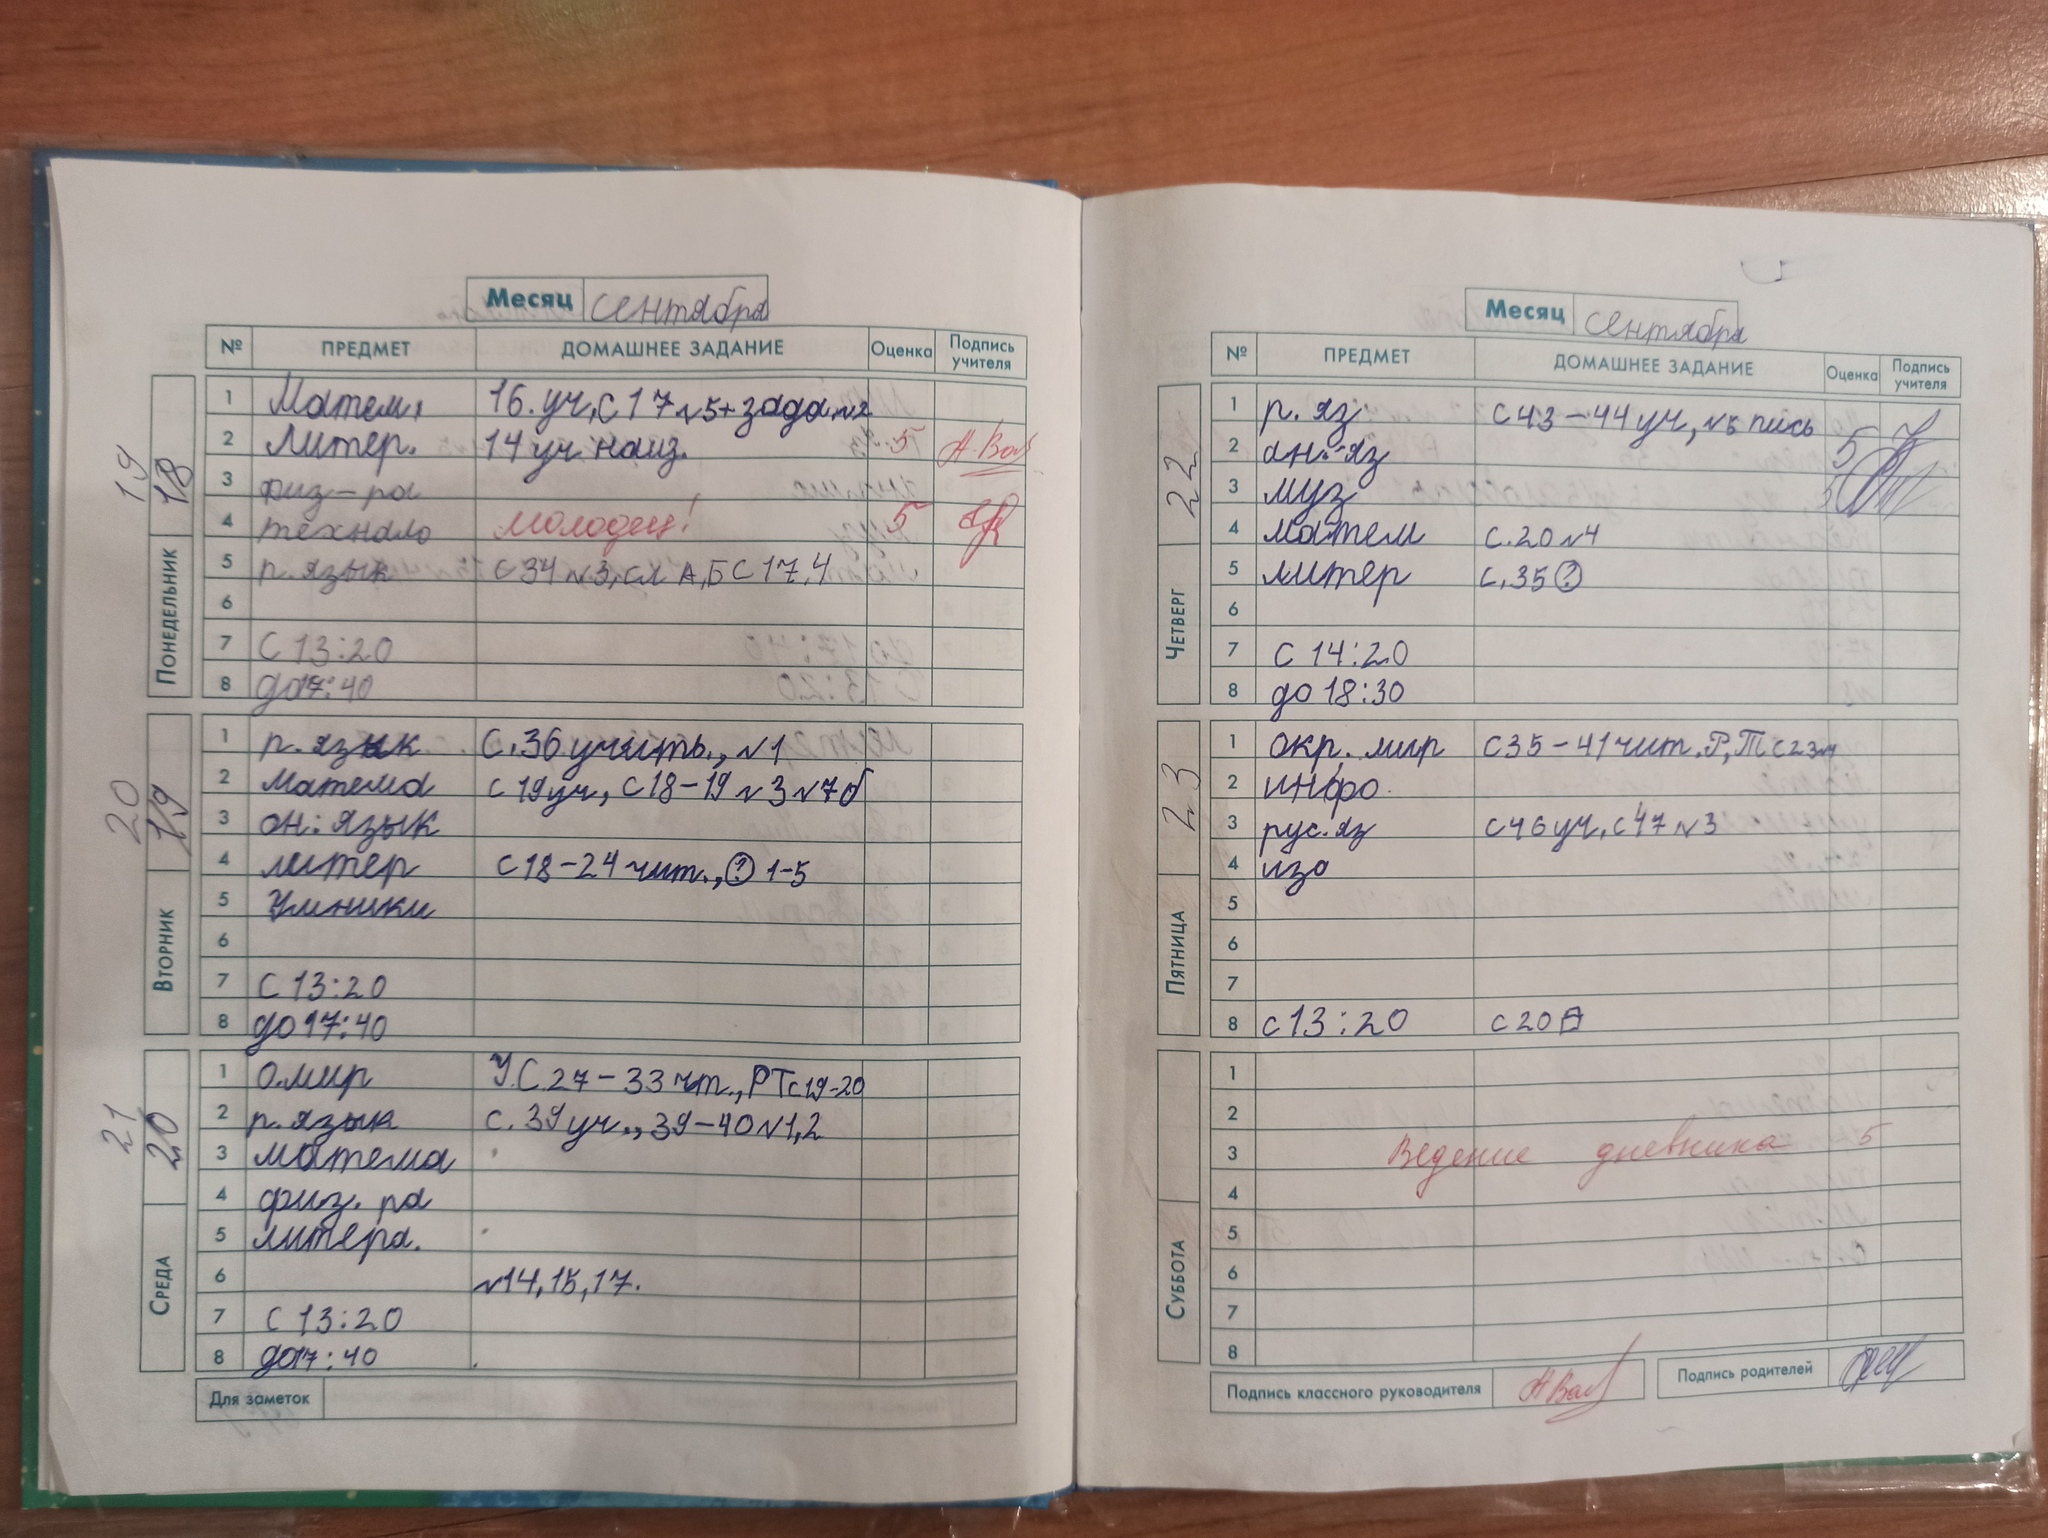 Месяц сентября
№ ПРЕДМЕТ ДОМАШНЕЕ ЗАДАНИЕ Оценка Подпись учителя
Понедельник 19 18
1 Матем. 16. уч, с 17 №5+задач №2
2 Литер. 14 уч наиз. 5 Н.Вол
3 физ-ра
4 технало молодец! 5
5 р. язык с 34 №3, сл А,Б С 17, 4
6
7 С 13:20
8 до 17:40
Вторник 20 19
1 р. язык С. 36 учить., №1
2 матема с 19 уч, с 18-19 №3 №7б
3 ан: язык
4 литер с 18-24 чит., ? 1-5
5 Умники
6
7 С 13:20
8 до 17:40
Среда 21 20
1 о.мир У. С. 27-33 чт., РТ с 19-20
2 р. язык с. 39 уч., 39-40 №1,2
3 матема
4 физ. ра
5 литера.
6 №14, 15, 17.
7 с 13:20
8 до 17:40
Для заметок
Месяц сентября
№ ПРЕДМЕТ ДОМАШНЕЕ ЗАДАНИЕ Оценка Подпись учителя
Четверг 22
1 р. яз с 43-44 уч, пись
2 ан: яз 5
3 муз
4 матем с. 20 №4
5 литер с. 35 ?
6
7 с 14:20
8 до 18:30
Пятница 23
1 окр. мир с 35-41 чит. Р,Т с 23
2 инфо.
3 рус. яз с 46 уч, с 47 №3
4 изо
5
6
7
8 с 13:20 с 20
Суббота
1
2
3 Ведение дневника 5
4
5
6
7
8
Подпись классного руководителя Н Вол Подпись родителей